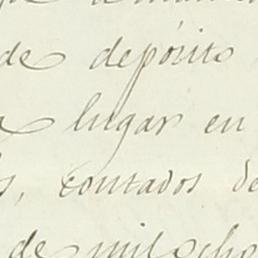 de depósito
lugar en
s, contados de
de mil ocho